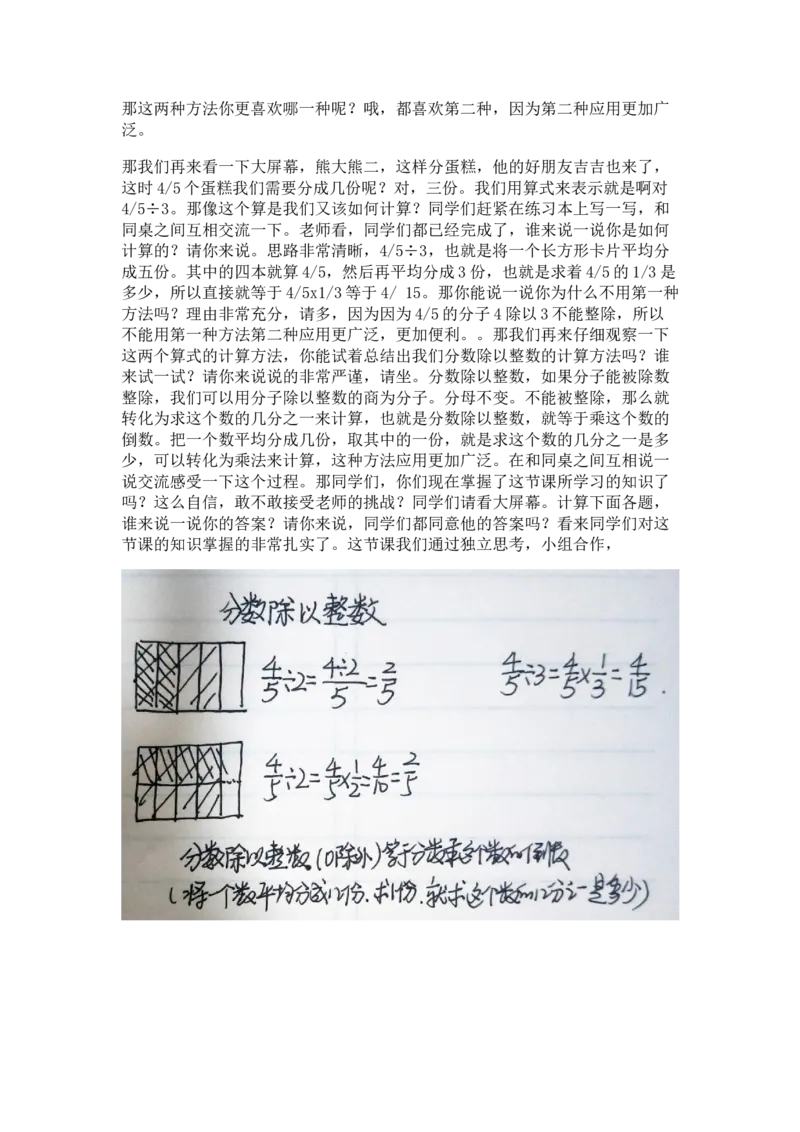 那这两种方法你更喜欢哪一种呢？哦，都喜欢第二种，因为第二种应用更加广
泛。
那我们再来看一下大屏幕，熊大熊二，这样分蛋糕，他的好朋友吉吉也来了，
这时 4/5 个蛋糕我们需要分成几份呢？对，三份。我们用算式来表示就是啊对
4/5÷3。那像这个算是我们又该如何计算？同学们赶紧在练习本上写一写，和
同桌之间互相交流一下。老师看，同学们都已经完成了，谁来说一说你是如何
计算的？请你来说。思路非常清晰，4/5÷3，也就是将一个长方形卡片平均分
成五份。其中的四本就算 4/5，然后再平均分成 3 份，也就是求着 4/5 的 1/3 是
多少，所以直接就等于 4/5x1/3 等于 4/ 15。那你能说一说你为什么不用第一种
方法吗？理由非常充分，请多，因为因为 4/5 的分子 4 除以 3 不能整除，所以
不能用第一种方法第二种应用更广泛，更加便利。。那我们再来仔细观察一下
这两个算式的计算方法，你能试着总结出我们分数除以整数的计算方法吗？谁
来试一试？请你来说说的非常严谨，请坐。分数除以整数，如果分子能被除数
整除，我们可以用分子除以整数的商为分子。分母不变。不能被整除，那么就
转化为求这个数的几分之一来计算，也就是分数除以整数，就等于乘这个数的
倒数。把一个数平均分成几份，取其中的一份，就是求这个数的几分之一是多
少，可以转化为乘法来计算，这种方法应用更加广泛。在和同桌之间互相说一
说交流感受一下这个过程。那同学们，你们现在掌握了这节课所学习的知识了
吗？这么自信，敢不敢接受老师的挑战？同学们请看大屏幕。计算下面各题，
谁来说一说你的答案？请你来说，同学们都同意他的答案吗？看来同学们对这
节课的知识掌握的非常扎实了。这节课我们通过独立思考，小组合作，
分数除以整数
4/5÷2=4÷2/5=2/5
4/5÷3=4/5×1/3=4/15.
4/5÷2=4/5×1/2=4/10=2/5
分数除以整数(0除外)等于分数乘这个数的倒数
(将一个数平均分成几份.求1份.就求这个数的几分之一是多少)